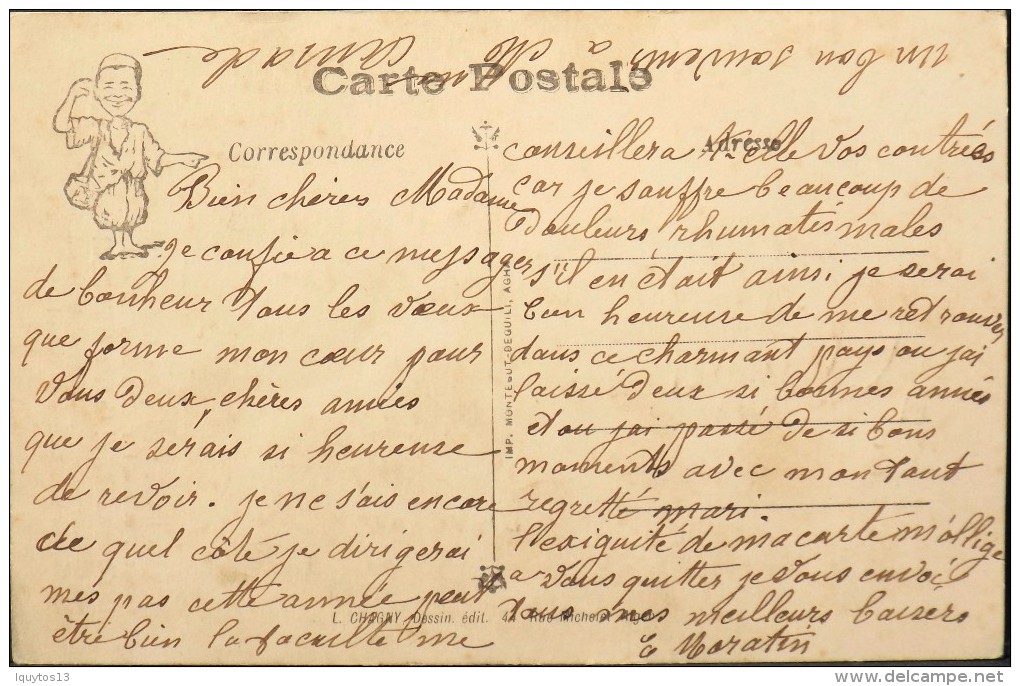 un bon souvenir à Mr
Carte Postale
Correspondance
Adresse
Bien chères Madame
je confie a ce messager
de bonheur tous les vœux
que forme mon cœur pour
vous deux, chères amies
que je serais si heureuse
de revoir. je ne sais encore
de quel côté je dirigerai
mes pas cette année peut
être bien la faculté me
conseillera t elle vos contrées
car je souffre beaucoup de
Douleurs rhumatésmales
s'il en était ainsi je serai
bien heureuse de me retrouver
dans ce charmant pays ou j'ai
laissé Deux si bonnes amies
et ou j'ai passé de si bons
moments avec mon tant
regretté mari.
l'exiguité de ma carte m'oblige
a vous quitter je vous envoi
tous mes meilleurs baisers
Moratin
IMP. MONTÉGUT-DEGUILI, AGHA
L. CHAGNY Dessin. édit. 44 Rue Michelet Alger
lquytos13
© delcampe.net